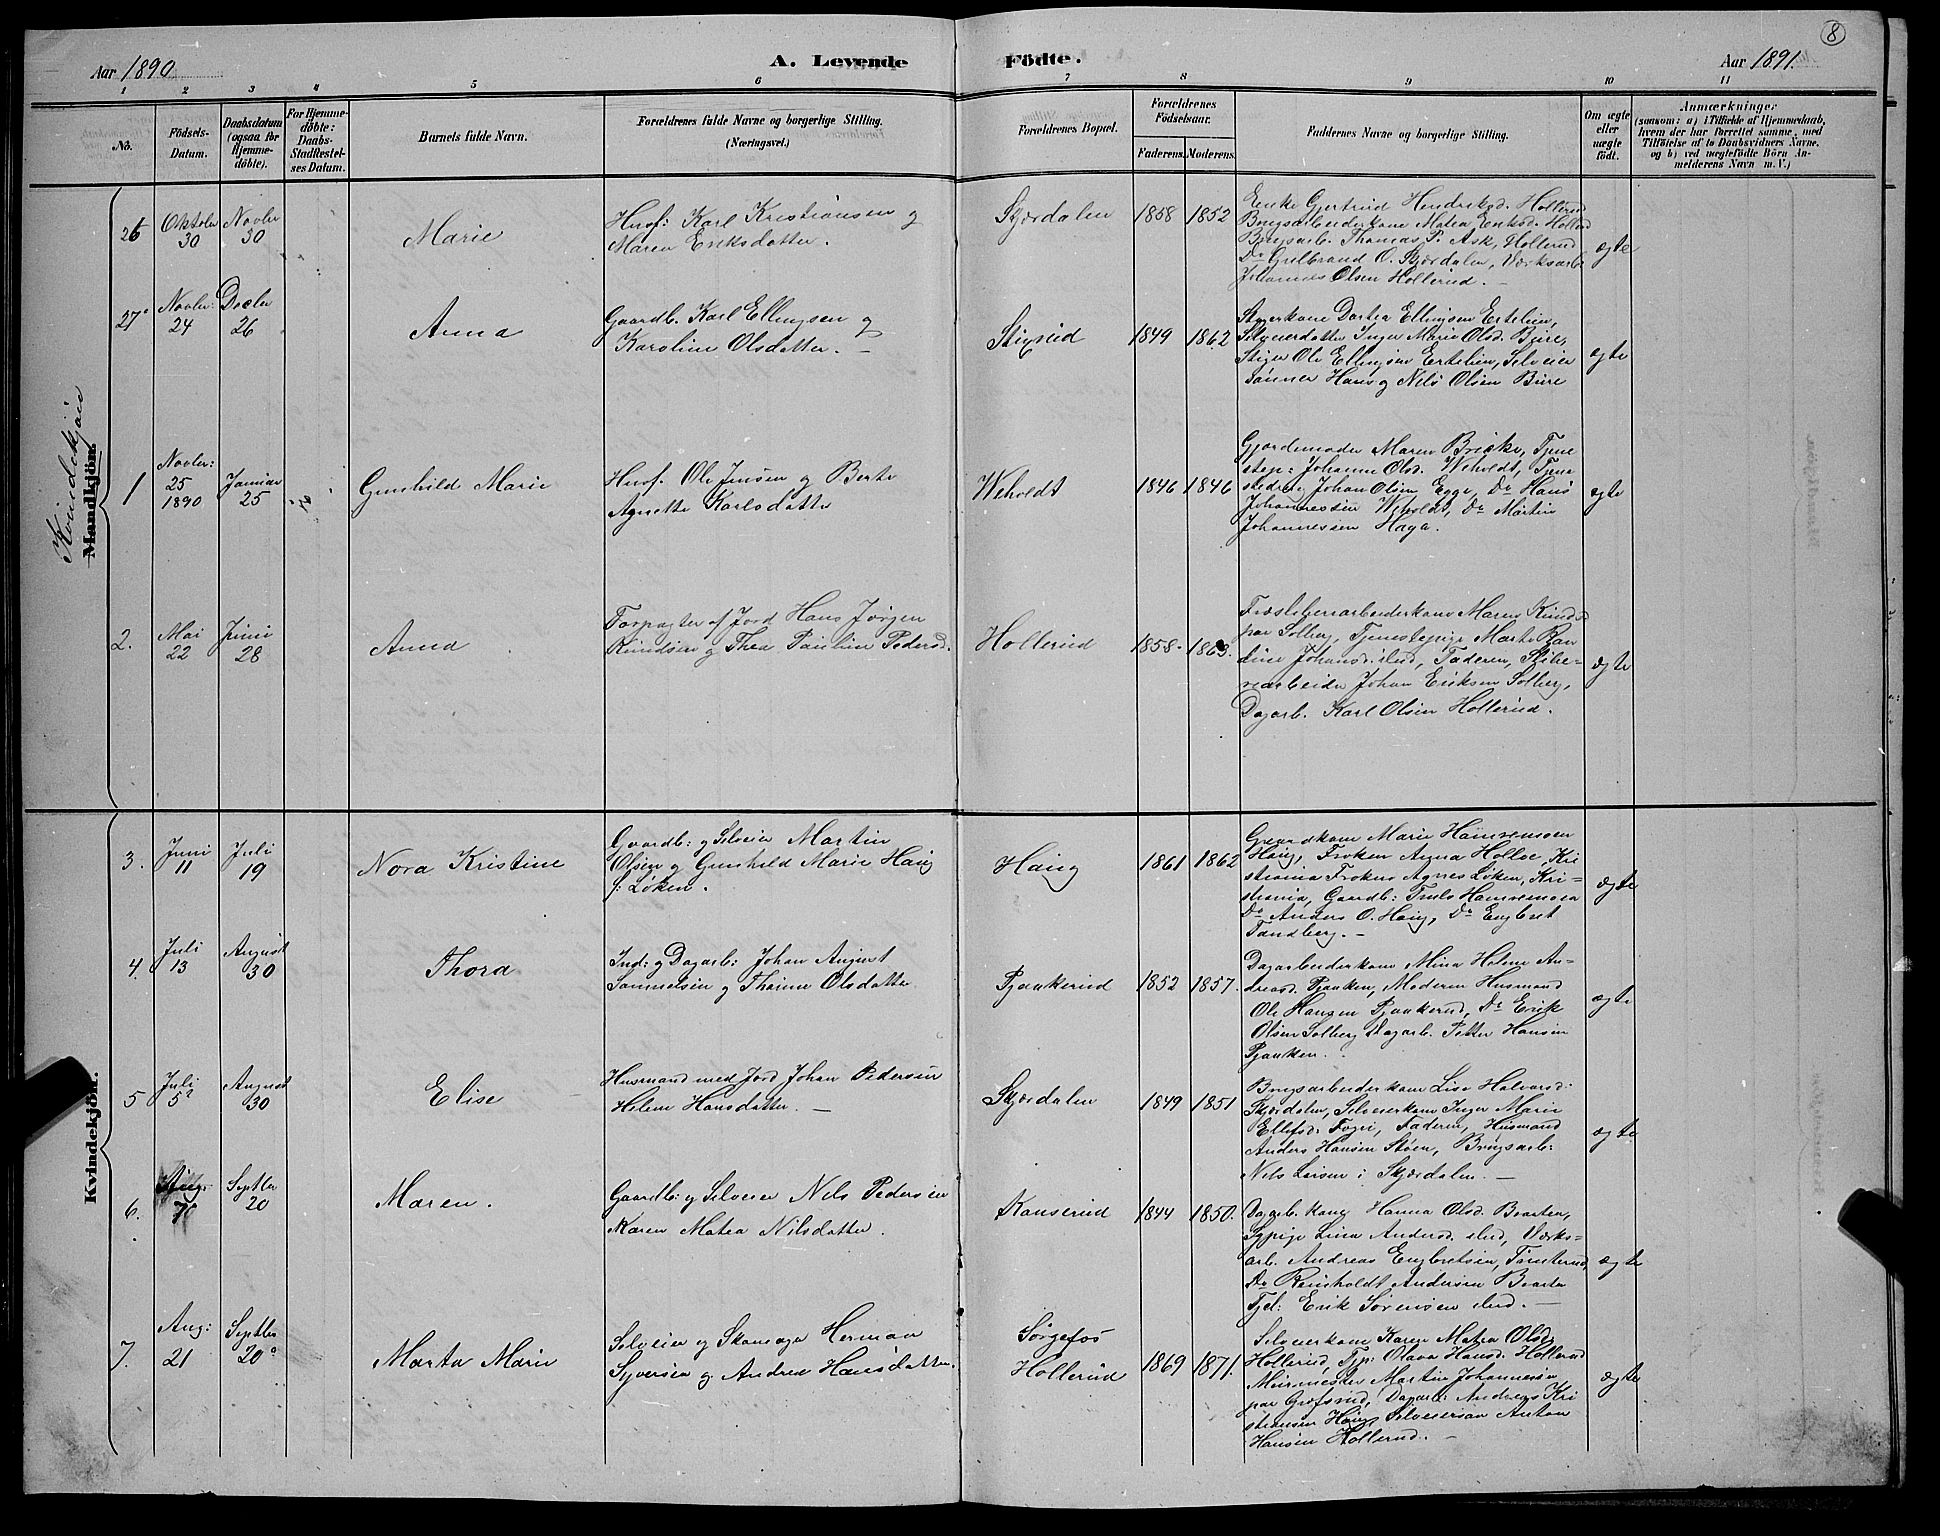 8
Aar 1890
A. Levende
Födte.
Aar 1891.
1 2 3 4 5 6 7 8 9 10 11
No.
Födsels-
Datum.
Daabsdatum
(ogsaa for
Hjemme-
döbte).
For Hjemme-
döbte:
Daabs-
Stadfæstel-
ses Datum.
Barnets fulde Navn.
Forældrenes fulde Navne og borgerlige Stilling.
(Næringsvei.)
Forældrenes Bopæl.
Forældrenes
Födselsaar.
Faderens. Moderens.
Faddernes Navne og borgerlige Stilling.
Om ægte
eller
uægte
födt.
Anmærkninger
(saasom: a) i Tilfælde af Hjemmedaab,
hvem der har forrettet samme, med
Tilföielse af to Daabsvidners Navne,
og b) ved uægtefödte Börn An-
melderens Navn m. V.)
Kvindekjön
Mandkjön.
26
Oktober
30
Novbr
30
Marie
Husf: Karl Kristiansen og
Maren Eriksdatter.
Skjærdalen
1858
1852
Enke Gjertrud Hendriksd. Hollerud
Brugsarbeiderkone Matea Eriksd. Hollerud
Brugsarb. Thomas P. Ask, Hollerud
Do Gulbrand O. Skjærdalen, Værksarb.
Johannes Olsen Hollerud. -
ægte
27
Novbr:
24
Decbr
26
Anna
Gaardb. Karl Ellingsen og
Karoline Olsdatter. -
Stixrud
1849
1862
Stigerkone Dortea Ellingsen Ertelien,
Selveierdatter Inger Marie Olsd. Bure,
Stiger Ole Ellingsen Ertelien, Selveier
sønner Hans og Nils Olsen Bure
ægte
1
Novbr:
25
1890
Januar
25
Gunhild Marie
Husf. Ole Jensen og Berte
Agnette Karlsdatter
Weholdt
1846
1846
Gjordemoder Maren Briske, Tjene
step: Johanne Olsd. Weholdt, Tjene
stedr: Johan Olsen Egge, Do Hans
Johannessen Weholdt, Do Martin
Johannessen Haga.
ægte
2.
Mai
22
Juni
28
Anna
Forpagter af Jord Hans Jørgen
Knudsen og Thea Pauline Pedersd.
Hollerud
1858
1863.
Træsliberiarbeiderkone Maren Knuds.
paa Solberg, Tjenestepige Marte Ran
dine Johansd. ibid, Faderen, Slibe-
riarbeider Johan Eriksen Solberg,
Dagarb. Karl Olsen Hollerud.
ægte
Kvindekjön.
3.
Juni
11
Juli
19
Nora Kristine
Gaardb: og Selveier Martin
Olsen og Gunhild Marie Haug
f: Løken.
Haug
1861
1862
Gaardkone Marie Hamremoen
Haug, Frøken Agna Hollve, Kri
stiania Frøken Agnes Løken, Kri-
stiania, Gaardb: Truls Hamremoen
Do Anders O. Haug, Do Engbret
Tandberg. -
ægte
4.
Juli
13
August
30
Thora
Ind: og Dagarb: Johan August
Samuelsen og Thorine Olsdatter
Pjaakerud
1852
1857.
Dagarbeiderkone Mina Helene An-
dreasd. Pjaaken, Moderen Husmand
Ole Hansen Pjaakerud, Do Erik
Olsen Solberg Dagarb. Petter Hansen
Pjaaken.
ægte
5
Juli
5
August
30
Elise
Husmand med Jord Johan Pedersen
Helene Hansdatter. -
Skjærdalen
1849
1851
Brugsarbeiderkone Lise Halvorsd:
Skjærdalen, Selveierkone Inger Marie
Ellefsd: Fogri, Faderen, Husmand
Anders Hansen Støen, Brugsarb:
Nils Larsen i Skjærdalen. -
ægte
6.
Aug:
7
Septbr
20
Maren.
Gaardb: og Selveier Nils Pedersen
Karen Matea Nilsdatter.
Kauserud
1844
1850.
Dagarb. kone Hanna Olsd. Braaten,
Sypige Lina Andersd. ibid, Værks-
arb. Andreas Engbretsen, Tømterud,
Do Reinholdt Andersen Braaten
Tjel: Erik Sørensen ibid. -
ægte
7.
Aug:
21
Septbr
20
Marta Marie
Selveier og Skomager Herman
Syversen og Andrea Hansdatter.
Sørgefos
Hollerud
1869
1871.
Selveierkone Karen Matea Olsd.
Hollerud, Tjp: Olava Hansd. Hollerud
Murmester Martin Johannesen
paa Grøfsrud, Dagarb: Andreas Kri
stiansen Haug, Selveiersøn Anton
Hansen Hollerud. -
ægte